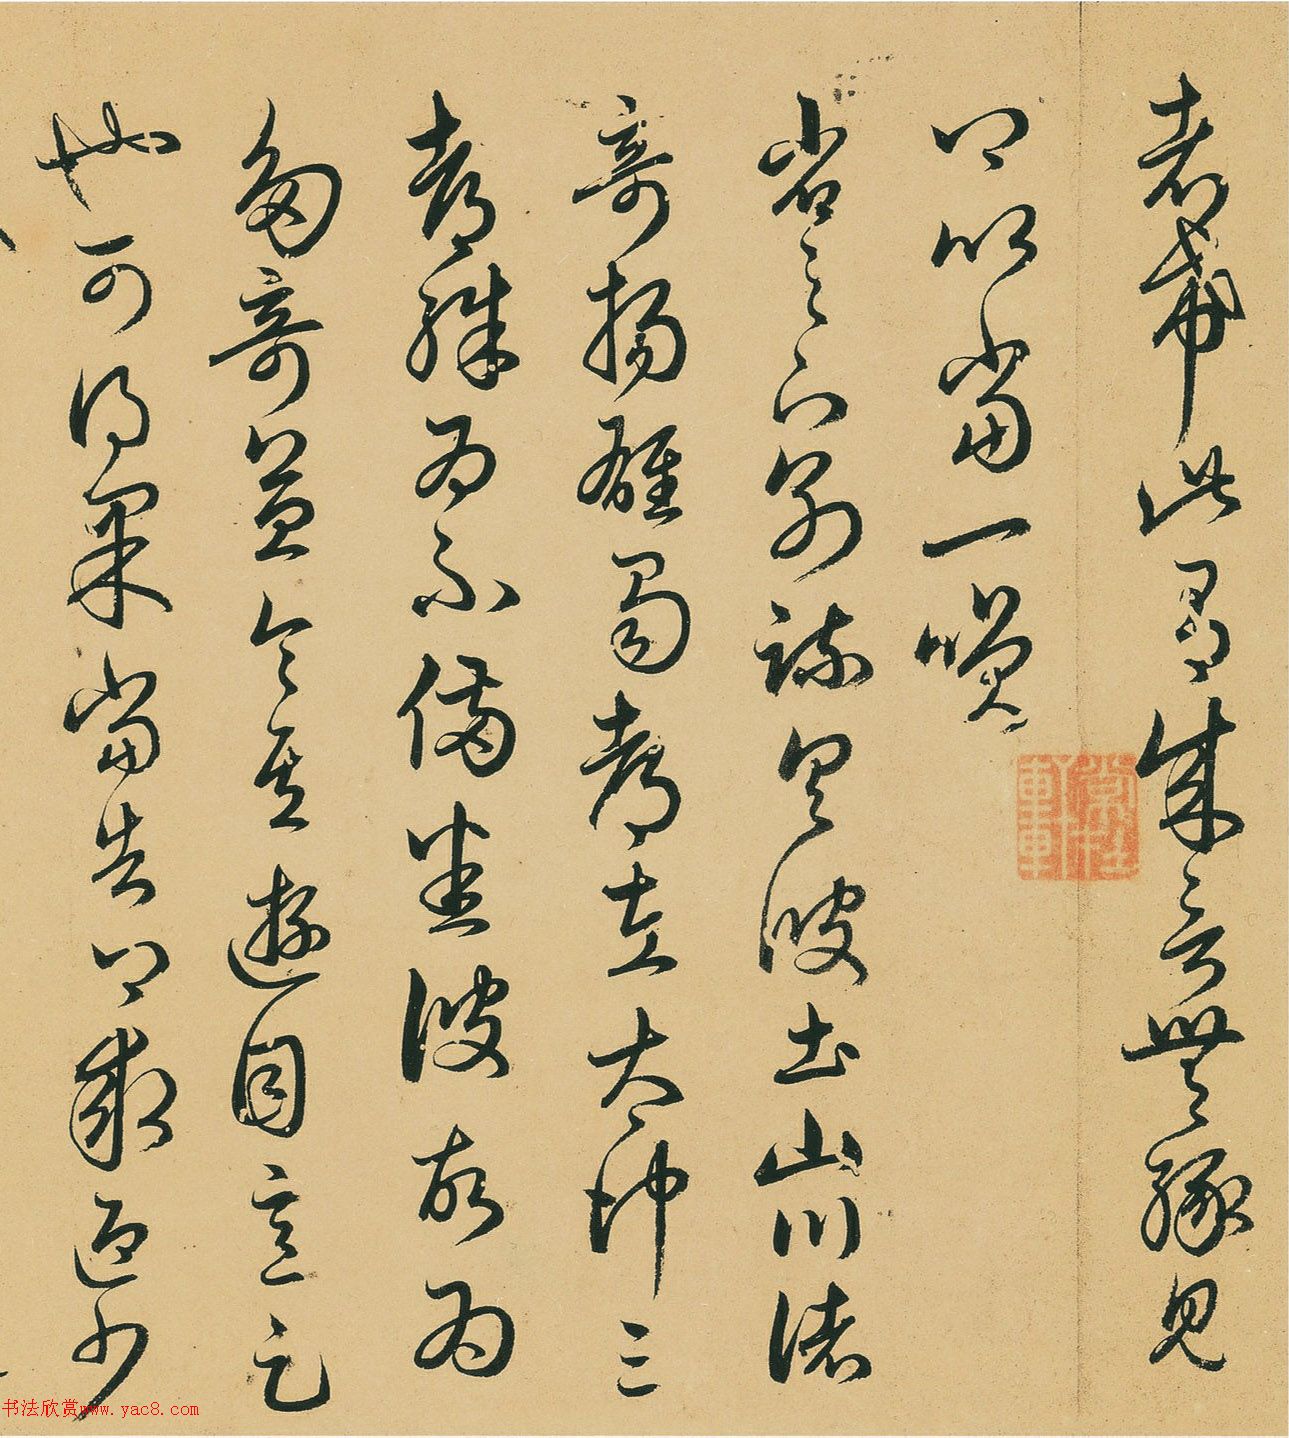 者希此有成言無緣見
卿以當一笑
省足下別疏具彼土山川諸
奇揚雄蜀都左太沖三
都殊為不備悉彼故為
多奇益令其遊目意足
也可得果當告卿求迎少
书法欣赏www.yac8.com